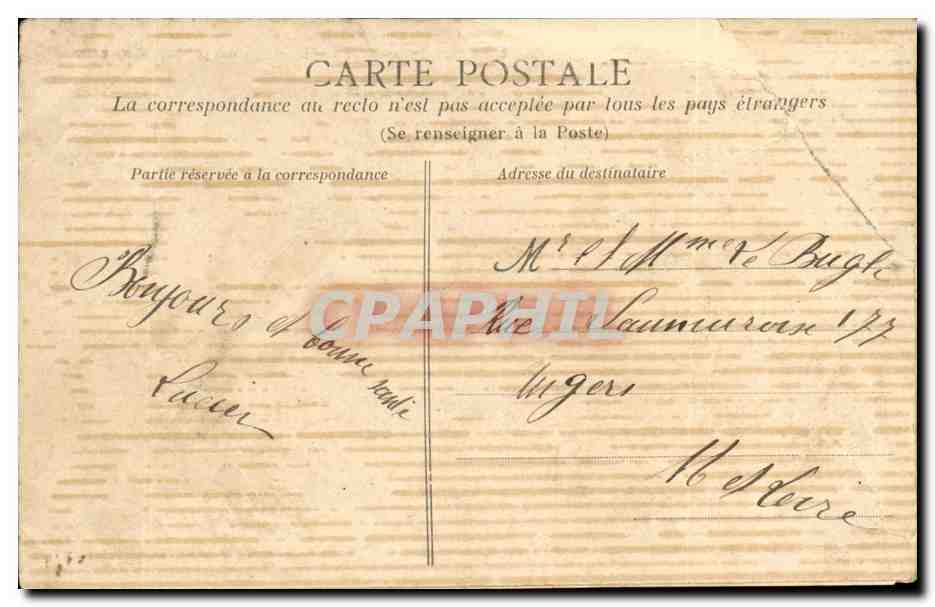 CARTE POSTALE
La correspondance au recto n'est pas acceptée par tous les pays étrangers
(Se renseigner à la Poste)
Partie réservée à la correspondance
Adresse du destinataire
Bonjours et bonne santé
Lucien
Mr et Mme Le Bugle
Rue Saumuroise 177
Angers
M et Loire
CPAPHIL